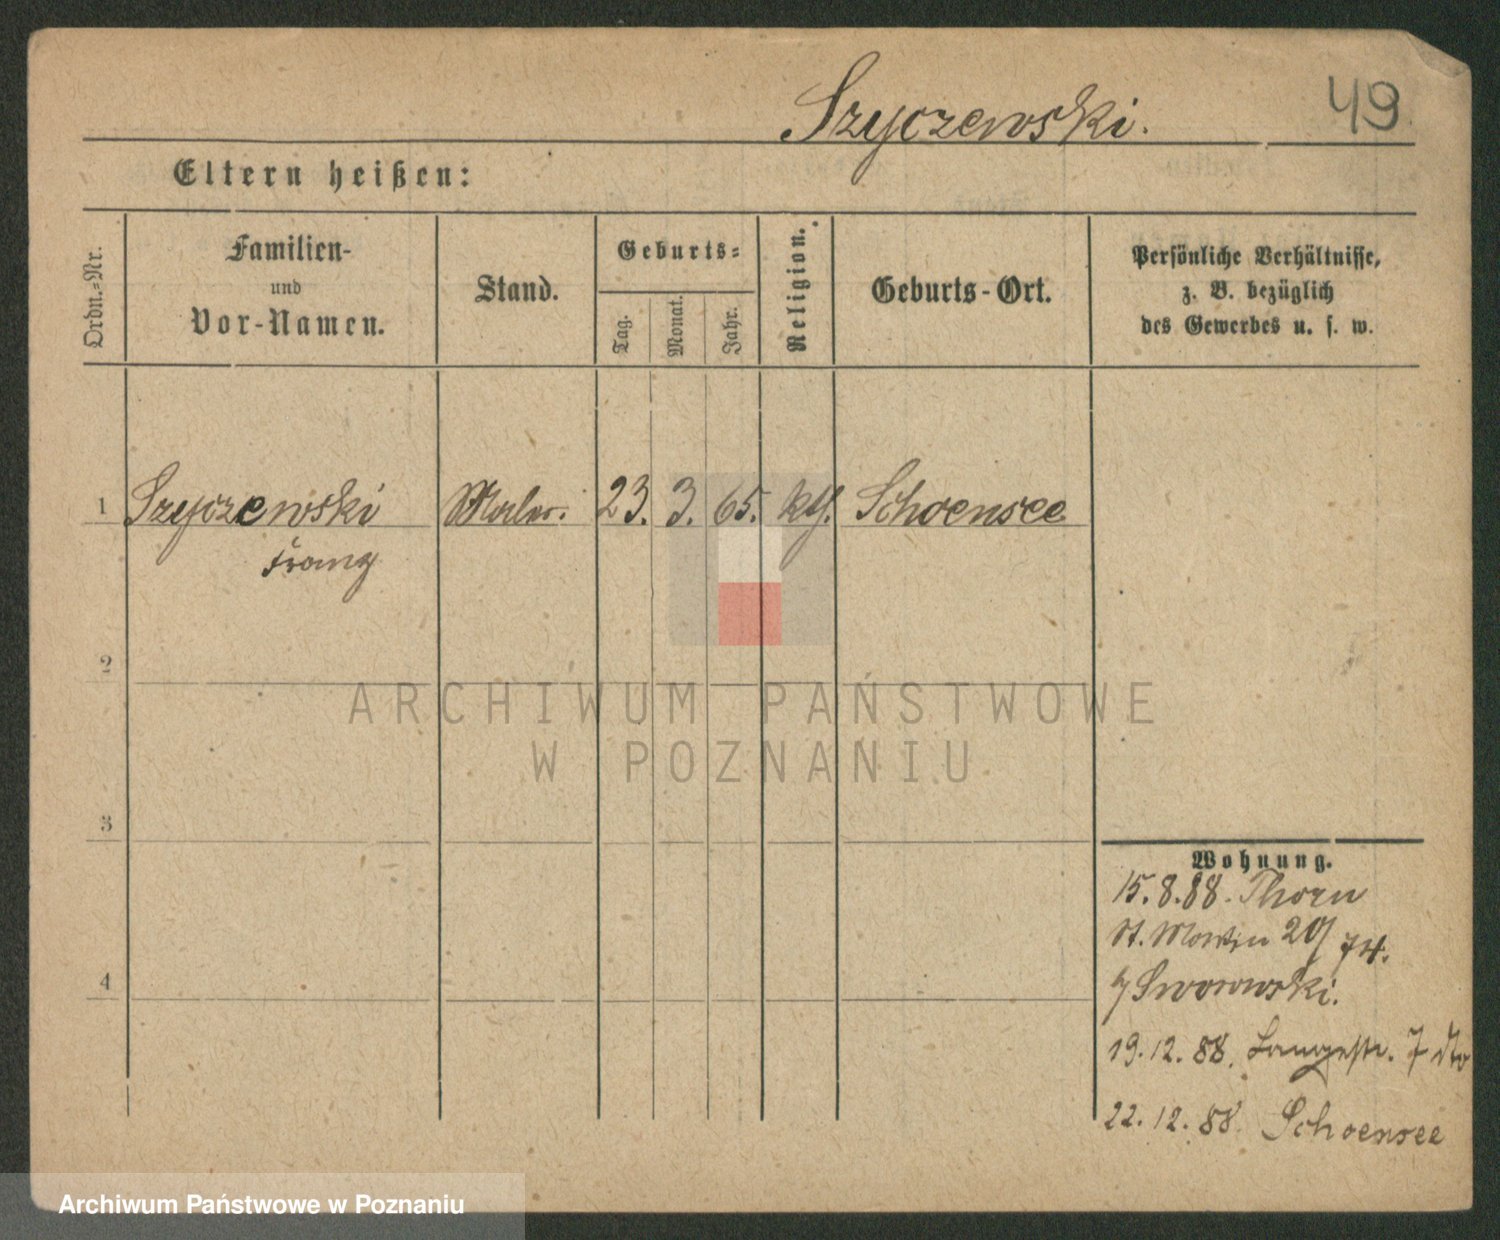 Szyczewski. 49
Eltern heißen:
Ordn.-Nr.
Familien-
und
Vor-Namen.
Stand.
Geburts-
Tag.
Monat.
Jahr.
Religion.
Geburts-Ort.
Persönliche Verhältnisse,
z. B. bezüglich
des Gewerbes u. s. w.
1 Szyczewski Maler. 23. 3. 65. kth. Schoensee
Franz
2
ARCHIWUM PAŃSTWOWE
W POZNANIU
3
Wohnung.
15.8.88. Thorn
St. Martin 20/74.
b/ Sworowski.
4
19.12.88. Langestr. 7 dto
22.12.88. Schoensee
Archiwum Państwowe w Poznaniu